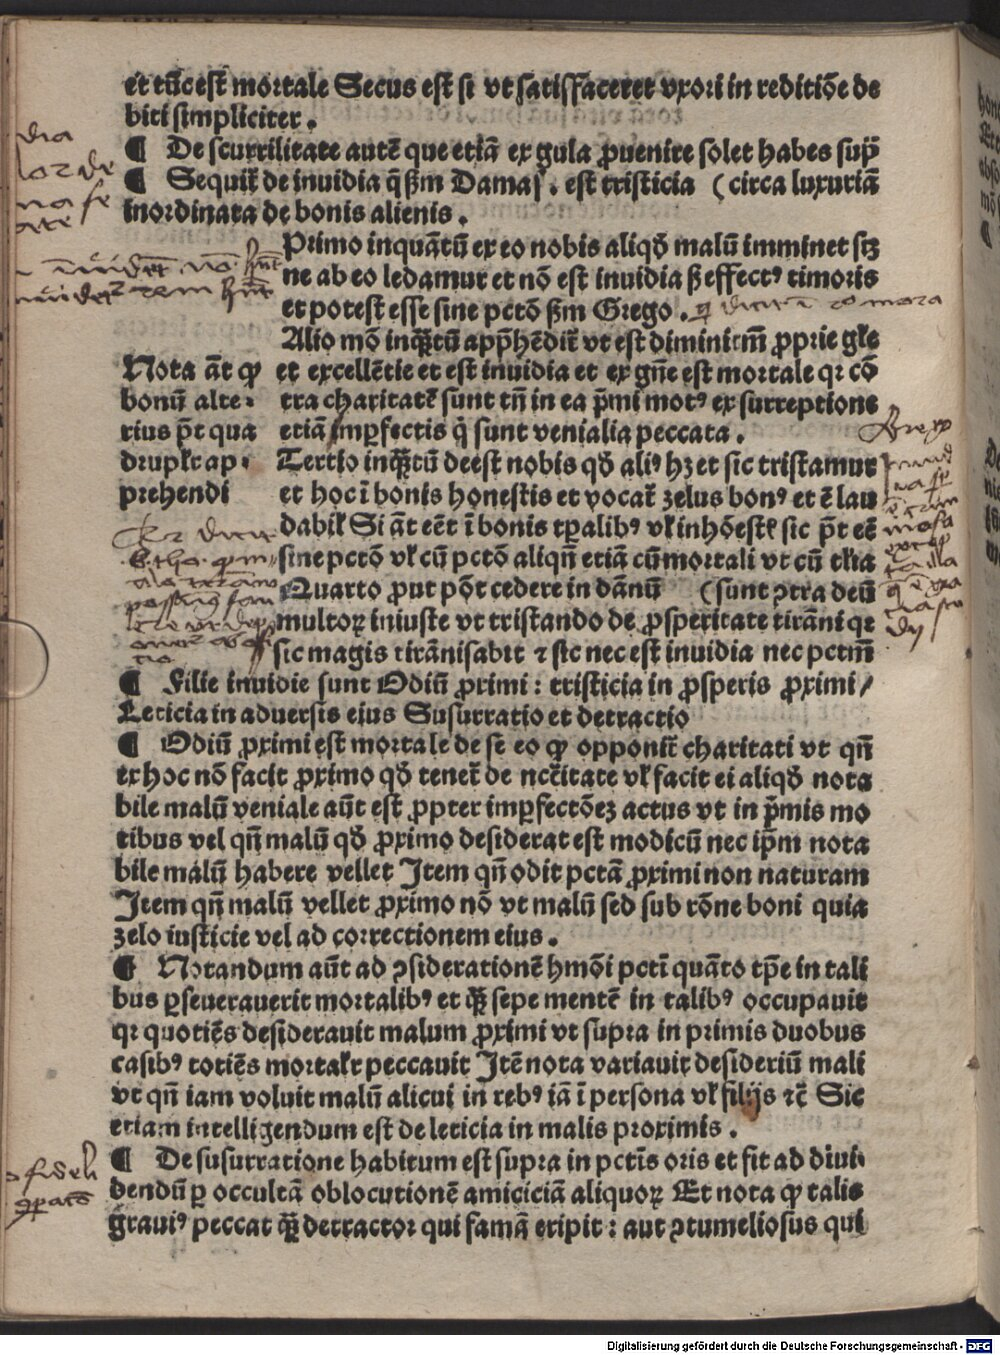 et tūc est mortale Secus est si vt satisfaceret vxori in reditiōe de
biti simpliciter .
¶ De scurrilitate autē que etiā ex gula ꝓuenire solet habes sup̄
¶ Sequit̄ de inuidia q̄ ẞm Damaſ . est tristicia ( circa luxuriā
inordinata de bonis alienis .
Primo inquātū ex eo nobis aliqđ malū imminet sꝫ
ne ab eo ledamur et nō est inuidia ß effectꝰ timoris
et potest esse sine pctō ẞm Grego .
Alio mō inq̄ꝫtū app̄hēdit̄ vt est diminitm̄ ꝓprie gl̄e
et excellētie et est inuidia et ex gn̄e est mortale qꝛ cō
tra charitatē sunt tn̄ in ea p̄mi motꝰ ex surreptione
etiā imꝑfectis q̄ sunt venialia peccata .
Nota āt ꝙ
bonū alte-
rius p̄t qua
drupl̄r ap-
prehendi
Tertio inq̄ꝫtū deest nobis qđ aliꝰ hꝫ et sic tristamur
et hoc ī bonis honestis et vocat̄ zelus bonꝰ et ē lau
dabil̄ Si āt eēt ī bonis tꝑalibꝰ vl̄ inhōestꝭ sic p̄t eē
sine pctō vl̄ cū pctō aliqn̄ etiā cū mortali vt cū tl̄ia
Quarto ꝓut pōt cedere in dānū ( sunt ꝯtra deū
multoꝝ iniuste vt tristando de ꝓsperitate tirāni qꝛ
sic magis tirānisabit ⁊ sic nec est inuidia nec pctm̄
¶ Filie inuidie sunt Odiū ꝓximi : tristicia in ꝓsperis ꝓximi /
Leticia in aduersis eius Susurratio et detractio
¶ Odiū ꝓximi est mortale de se eo ꝙ opponit̄ charitati vt qn̄
ex hoc nō facit ꝓximo qđ tenet̄ de nc̄citate vl̄ facit ei aliqđ nota
bile malū veniale aūt est ꝓpter imꝑfectōeꝫ actus vt in p̄mis mo
tibus vel qn̄ malū qđ ꝓximo desiderat est modicū nec ip̄m nota
bile malū habere vellet Item qn̄ odit pctā ꝓximi non naturam
Item qn̄ malū vellet ꝓximo nō vt malū sed sub rōne boni quia
zelo iusticie vel ad correctionem eius .
¶ Notandum aūt ad ꝯsiderationē hmōi pctī quāto tp̄e in tali
bus ꝑseuerauerit mortalibꝰ et q̄ꝫ sepe mentē in talibꝰ occupauit
qꝛ quotiēs desiderauit malum ꝓximi vt supra in primis duobus
casibꝰ totiēs mortal̄r peccauit Itē nota variauit desideriū mali
vt qn̄ iam voluit malū alicui in rebꝰ iā ī persona vl̄ filijs ⁊c̄ Sic
etiam intelligendum est de leticia in malis proximis .
¶ De susurratione habitum est supra in pctīs oris et fit ad diui-
dendū ꝑ occultā oblocutionē amiciciā aliquoꝝ Et nota ꝙ talis
grauiꝰ peccat q̄ꝫ detractor qui famā eripit : aut ꝯtumeliosus qui
Digitalisierung gefördert durch die Deutsche Forschungsgemeinschaft - DFG